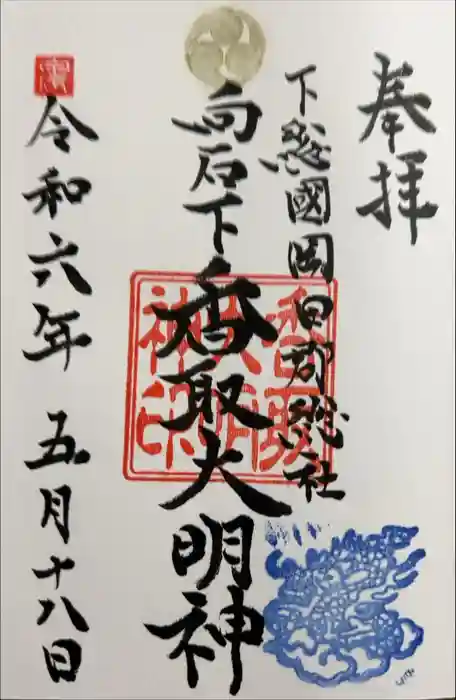 奉拝
下総國岡田郡総社
向石下
香取大明神
香取大明神印
令和六年 五月十八日